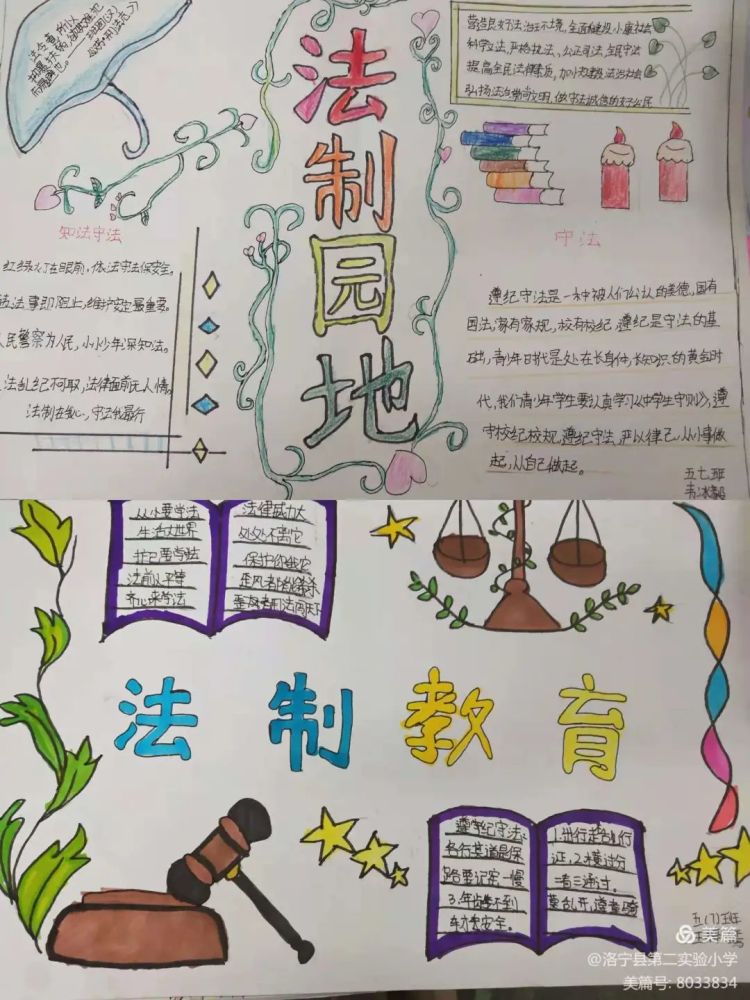 法令者,所以
法制园地
营造良好法治环境,全面建设小康社会
科学立法,严格执法,公正司法,全民守法
提高全民法律素质,加快建设法治社会
弘扬法治崇尚文明,做守法诚信的好公民
知法守法
红绿灯在眼前,依法守法保安全。
违法事即阻止,维护安定最重要。
人民警察为人民,小小少年深知法。
违法乱纪不可取,法律面前无人情。
法制在我心,守卫我最行
守法
遵纪守法是一种被人们公认的美德,国有
国法,家有家规,校有校纪,遵纪是守法的基
础,青少年时代是处在长身体,长知识的黄金时
代,我们青少年学生要认真学习《中学生守则》,遵
守校纪校规,遵纪守法,严以律己,从小事做
起,从自己做起。
五七班
从小要学法
生活大世界
法前人平等
齐心来学法
法律威力大
处处不离它
保护你我它
法制教育
遵学纪守法、
各行其道是保
路要记牢一慢
3.年龄不到
车才安全。
1.出行走各行
二看三通过。
五(7)班
美篇
@洛宁县第二实验小学
美篇号: 8033834